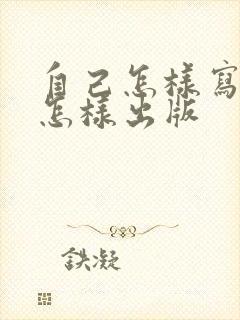 自己怎樣寫
怎樣出版
鉄凝